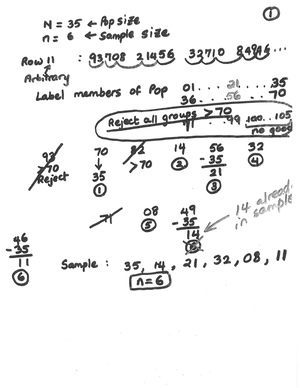 ①
N = 35 ← Pop size
n = 6 ← Sample size
Row 11 : 93708 21456 32710 84946 ...
Arbitrary
Label members of Pop 01 .... 21 ..... 35
36 .... 56 ..... 70
Reject all groups > 70
71 .. 99 100 .. 105
no good
93 70 82 14 56 32
>70 ↓ >70 ③ -35 ④
Reject 35 21
① ③
71 08 49
⑤ -35
14
14 already in sample
46
-35
11
⑥
Sample : 35, 14, 21, 32, 08, 11
n=6